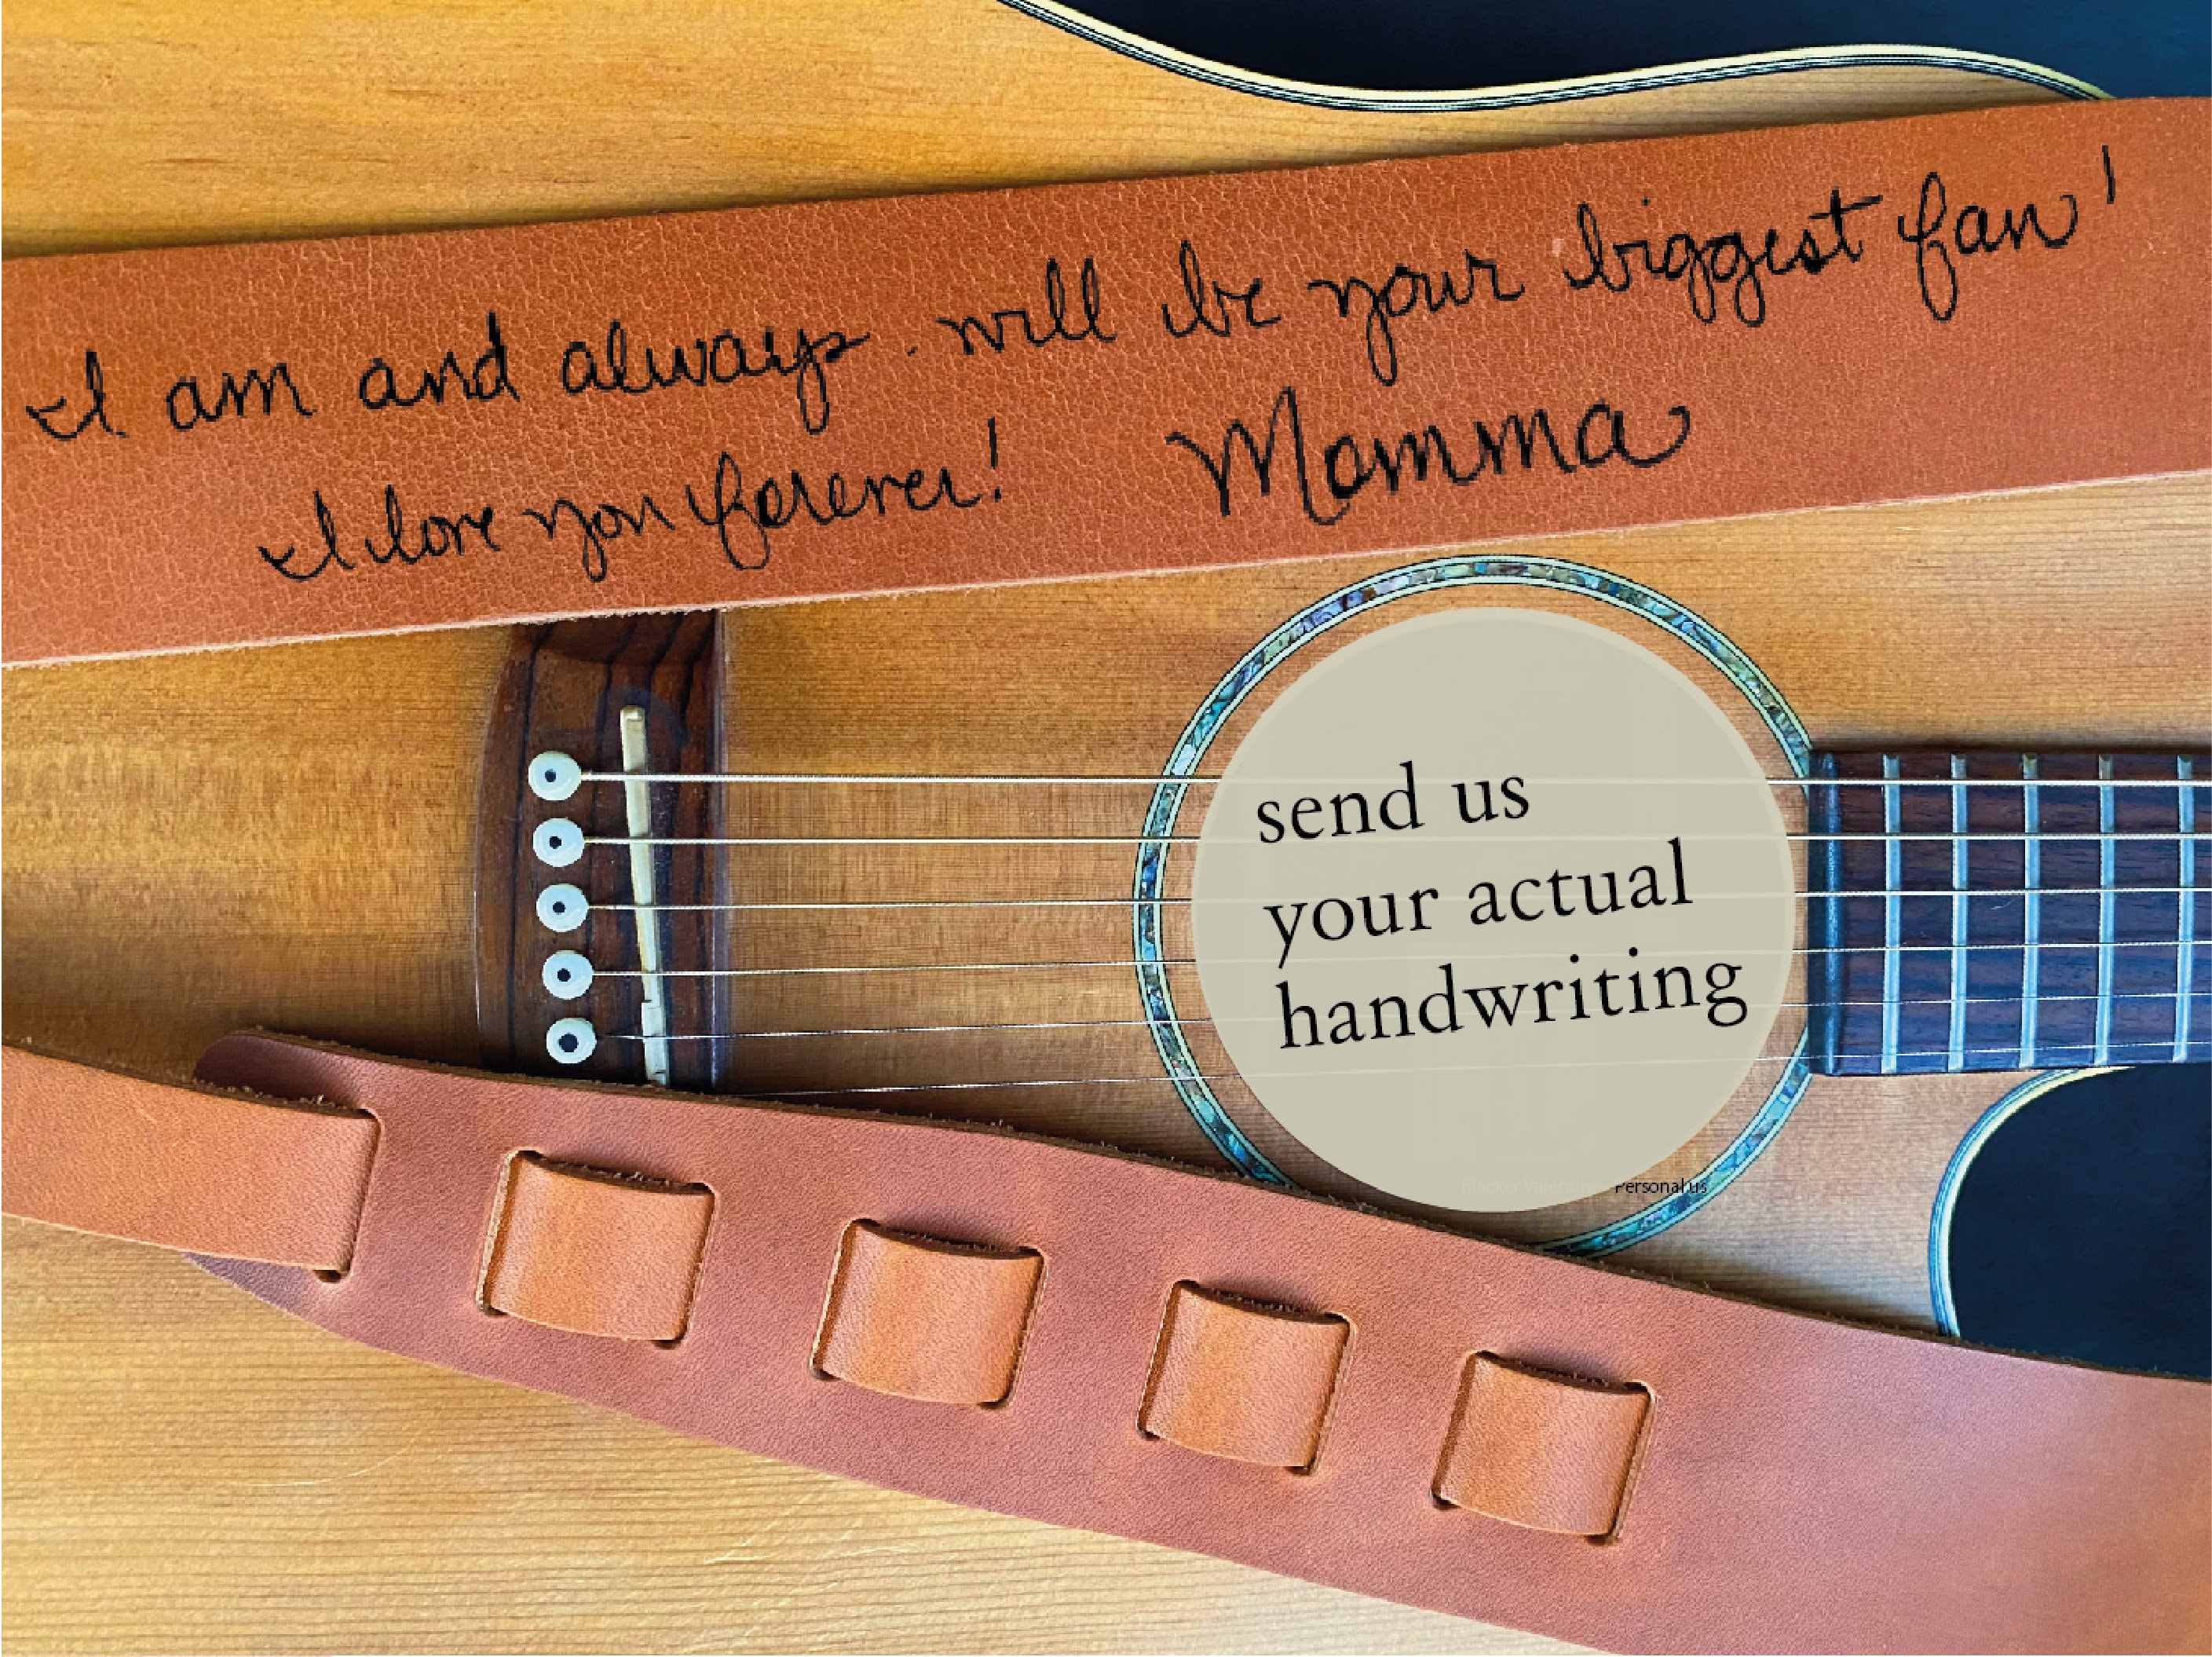 I am and always will be your biggest fan!
I love you forever! Momma
send us
your actual
handwriting
Blacker Valentine Personal us